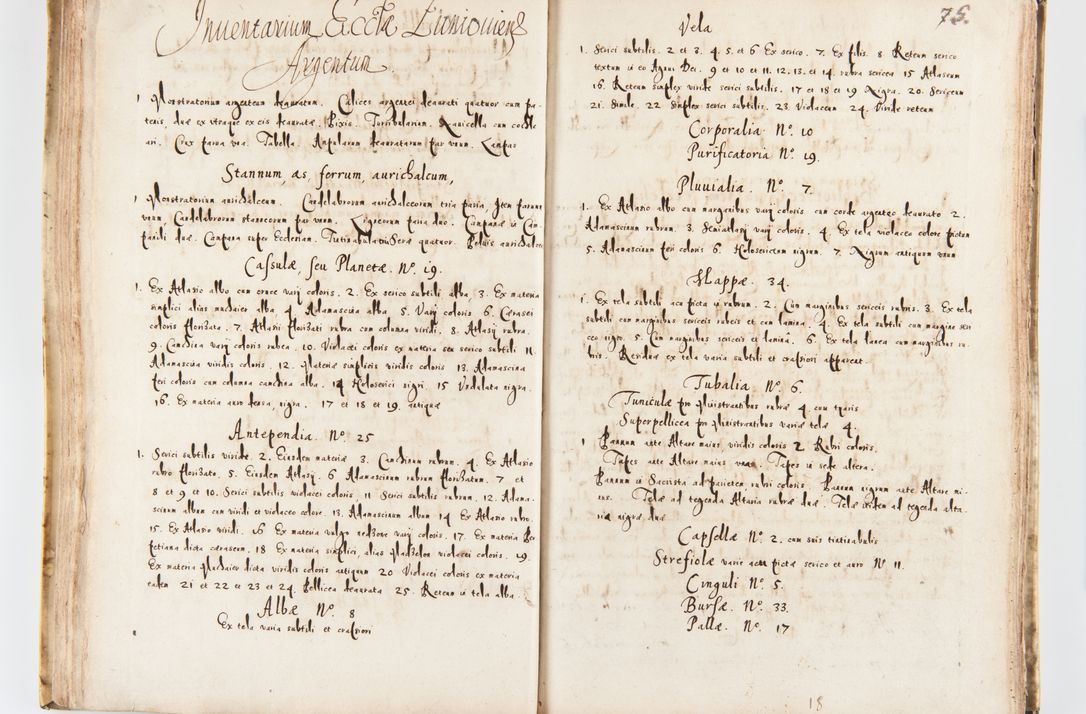 Inventarium Eccłæ
Argentum
1 Monstratorium argenteum deauratum. Calices argentei deaurati quatuor cum pa-
tenis, duæ ex utraque ex eis deauratæ. Pixis. Turribularium. Navicella cum cochle
ari. Crux parva una. Tabella. Ampularum deauratarum par unum. Lampas
Stannum, æs, ferrum, aurichalcum,
1 Monstratorium aurichalceum. Candelabrorum aurichalceorum tria paria, Item parvum
unum. Candelabrorum stanneorum par unum. Ligneorum paria duo. Campanæ in Cam
panili duæ. Campana super Ecclesiam. Tintinabula quatuor. Pelvis aurichalcea
Caſsulæ, seu Planetæ. Nº. 19.
1. Ex Atlasio albo cum cruce varij coloris. 2. Ex serico subtili alba. 3. Ex materia
simplici alias muchaier alba. 4. Adamascina alba. 5. Varij coloris 6. Carasei
coloris florisata. 7. Atlasii florisati rubra cum columna viridi. 8. Atlasij rubra.
9. Canchina varij coloris rubea. 10. Violacei coloris ex materia seu serico subtili 11.
Adamascina viridis coloris. 12. Materiæ simplicis viridis coloris 13. Adamascina
feri coloris cum columna canchina alba. 14 Holoserici nigri. 15 Undulata nigra.
16. Ex materia auro densa, nigra. 17 et 18 et 19. antiquæ
Antependia. Nº. 25
1. Serici subtilis viride. 2. Eiusdem materiæ 3. Canchinum rubrum. 4. Ex Atlasio
rubro florisato. 5. Eiusdem Atlasij. 6 Adamascinum rubrum florisatum. 7. et
8 et 9 et 10. Serici subtilis violacei coloris. 11 Serici subtilis rubrum. 12. Adama-
scinum album cum viridi et violaceo colore. 13. Adamascinum album 14 Ex Atlasio rubro.
15. Ex Atlasio viridi. 16 Ex materia vulgo varij coloris. 17. Ex materia
fetiana dicta caraseum. 18 Ex materia simplici, alias violacei coloris. 19.
Ex materia Muchaier dicta viridis coloris antiquum 20 Violacei coloris ex materia
eadem 21 et 22 et 23 et 24. Pellicea deaurata 25. Reteum in tela alba.
Albæ Nº. 8
Ex tela varia subtili et craſsiori
75.
Vela
1. Serici subtilis. 2 et 3. 4. 5. et 6 Ex serico. 7. Ex filis. 8 Reteum serico
textum in eo Agnus Dei. 9 et 10 et 11. 12. 13. et 14. rubra sericea 15 Atlaseum
16. Reteum simplex viride serici subtilis. 17 et 18 et 19 Nigra. 20. Sericeum
21. Simile. 22 Simplex serici subtilis. 23. Violaceum 24. Viride reteum
Corporalia Nº. 10
Purificatoria Nº. 19.
Pluvialia. Nº. 7.
1. Ex Atlasio albo cum marginibus varij coloris cum corde argenteo deaurato 2.
Adamascinum rubrum. 3. Semiatlasij varij coloris. 4. Ex tela violaceo colore pictum
5. Adamascinum feri coloris 6. Holosericeum nigrum. 7. Nigrum antiquum unum
Mappæ. 34.
1. Ex tela subtili acu picta in rubrum. 2. Cum marginibus sericeis rubris. 3. Ex tela
subtili cum marginibus sericeis rubeis et cum lamina. 4. Ex tela subtili cum margine seri
ceo nigro. 5. Cum marginibus sericeis et lamina. 6 Ex tela lanea cum marginibus ru-
bris. Residuæ ex tela varia subtili et craſsiori apparent.
Tubalia Nº. 6.
Tuniculæ pro Ministrantibus rubræ 4. cum
Superpellicea pro Ministrantibus variæ telæ 4.
1 Pannum ante Altare maius, viridis coloris 2 Rubri coloris.
Tapes ante Altare maius unus. Tapes in sede altera.
Pannum in Sacristia ad parietem rubri coloris. Panum nigrum ante Altare ma-
ius. Telæ ad tegenda Altaria rubræ duæ. Telæ itidem ad tegenda alta-
ria nigræ duæ
Capſellæ Nº 2. cum suis tintinabulis
Strefiolæ variæ acu pictæ serico et auro Nº 11.
Cinguli Nº 5.
Burſæ. Nº. 33.
Pallæ. Nº. 17
18